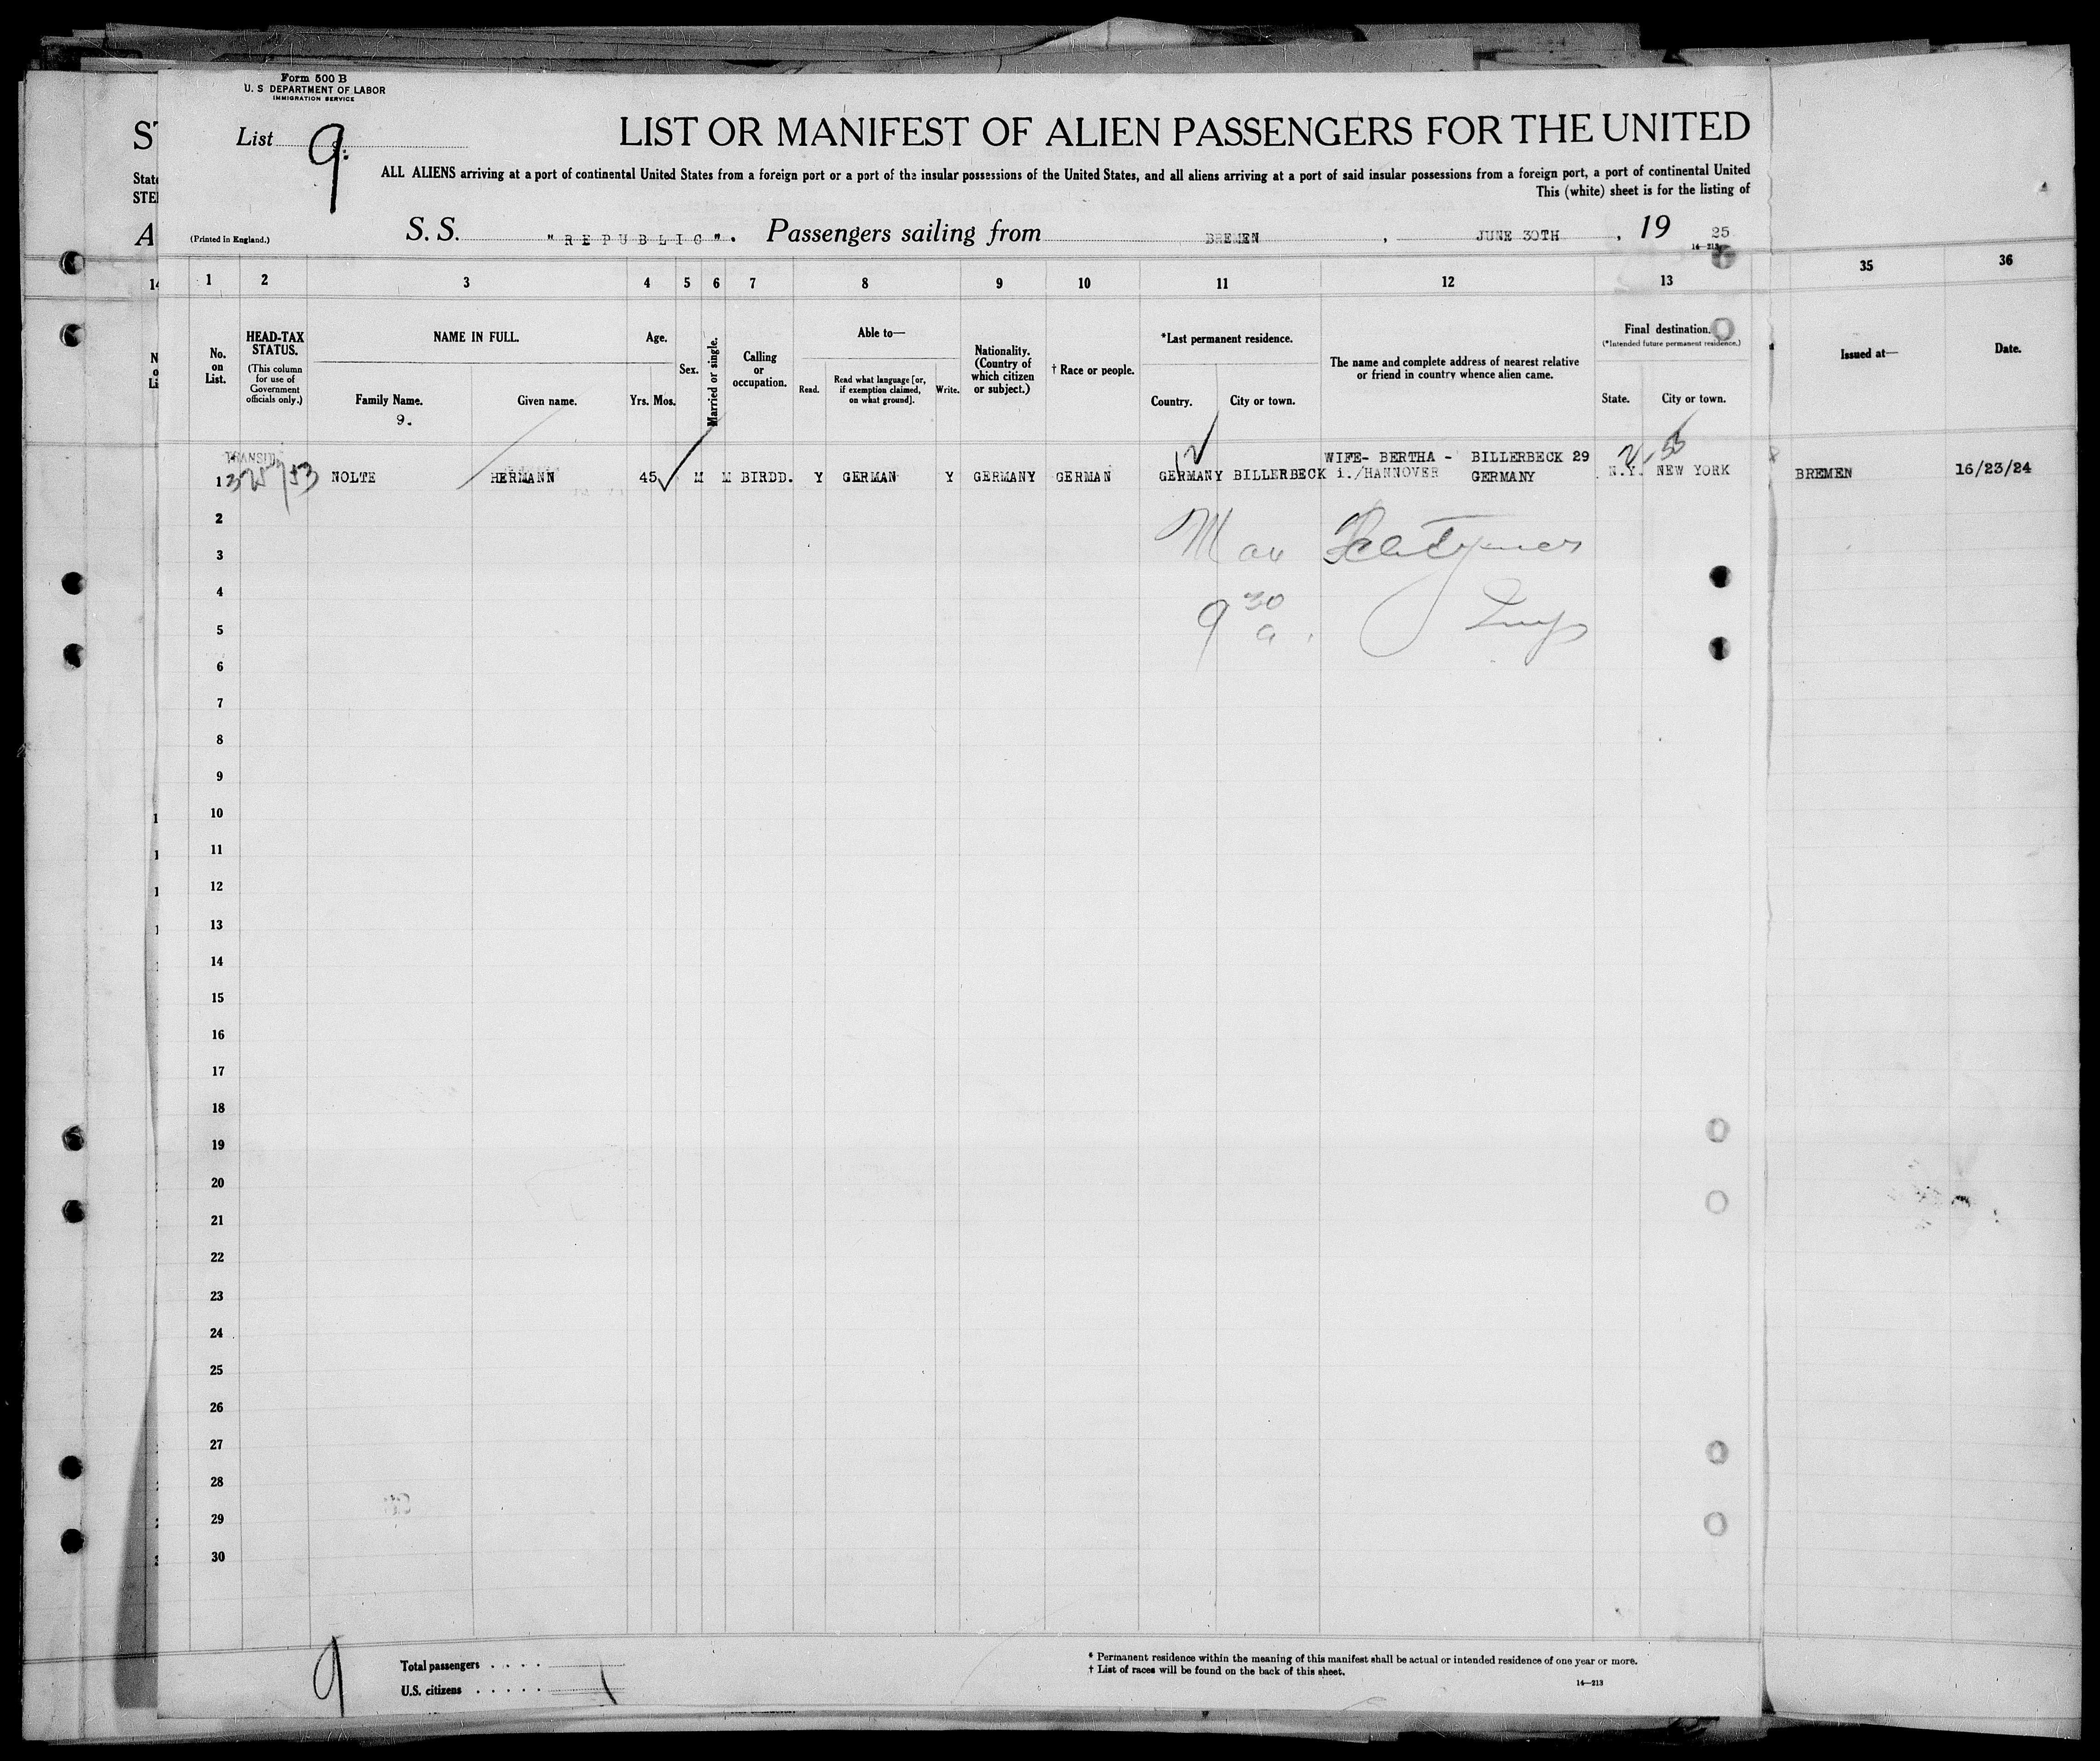 Form 500 B
U. S DEPARTMENT OF LABOR
IMMIGRATION SERVICE
List 9.
LIST OR MANIFEST OF ALIEN PASSENGERS FOR THE UNITED
ALL ALIENS arriving at a port of continental United States from a foreign port or a port of the insular possessions of the United States, and all aliens arriving at a port of said insular possessions from a foreign port, a port of continental United
This (white) sheet is for the listing of
State
(Printed in England.)
S. S. "REPUBLIC". Passengers sailing from BREMEN, JUNE 30TH, 19 25
14—213
1 2 3 4 5 6 7 8 9 10 11 12 13 35 36
No. on List.
HEAD-TAX STATUS.
(This column for use of Government officials only.)
NAME IN FULL.
Family Name.
9.
Given name.
Age.
Yrs. Mos.
Sex.
Married or single.
Calling or occupation.
Able to—
Read.
Read what language [or, if exemption claimed, on what ground].
Write.
Nationality. (Country of which citizen or subject.)
† Race or people.
*Last permanent residence.
Country.
City or town.
The name and complete address of nearest relative or friend in country whence alien came.
Final destination.
(*Intended future permanent residence.)
State.
City or town.
Issued at—
Date.
WIFE- BERTHA - BILLERBECK 29
1 NOLTE HERMANN 45 M M BIRDD. Y GERMAN Y GERMANY GERMAN GERMANY BILLERBECK i./HANNOVER GERMANY N.Y. NEW YORK BREMEN 16/23/24
2
3
4
9 30 a.
5
6
7
8
9
10
11
12
13
14
15
16
17
18
19
20
21
22
23
24
25
26
27
28
29
30
9
Total passengers . . . .
U.S. citizens . . . . .
* Permanent residence within the meaning of this manifest shall be actual or intended residence of one year or more.
† List of races will be found on the back of this sheet.
14—213